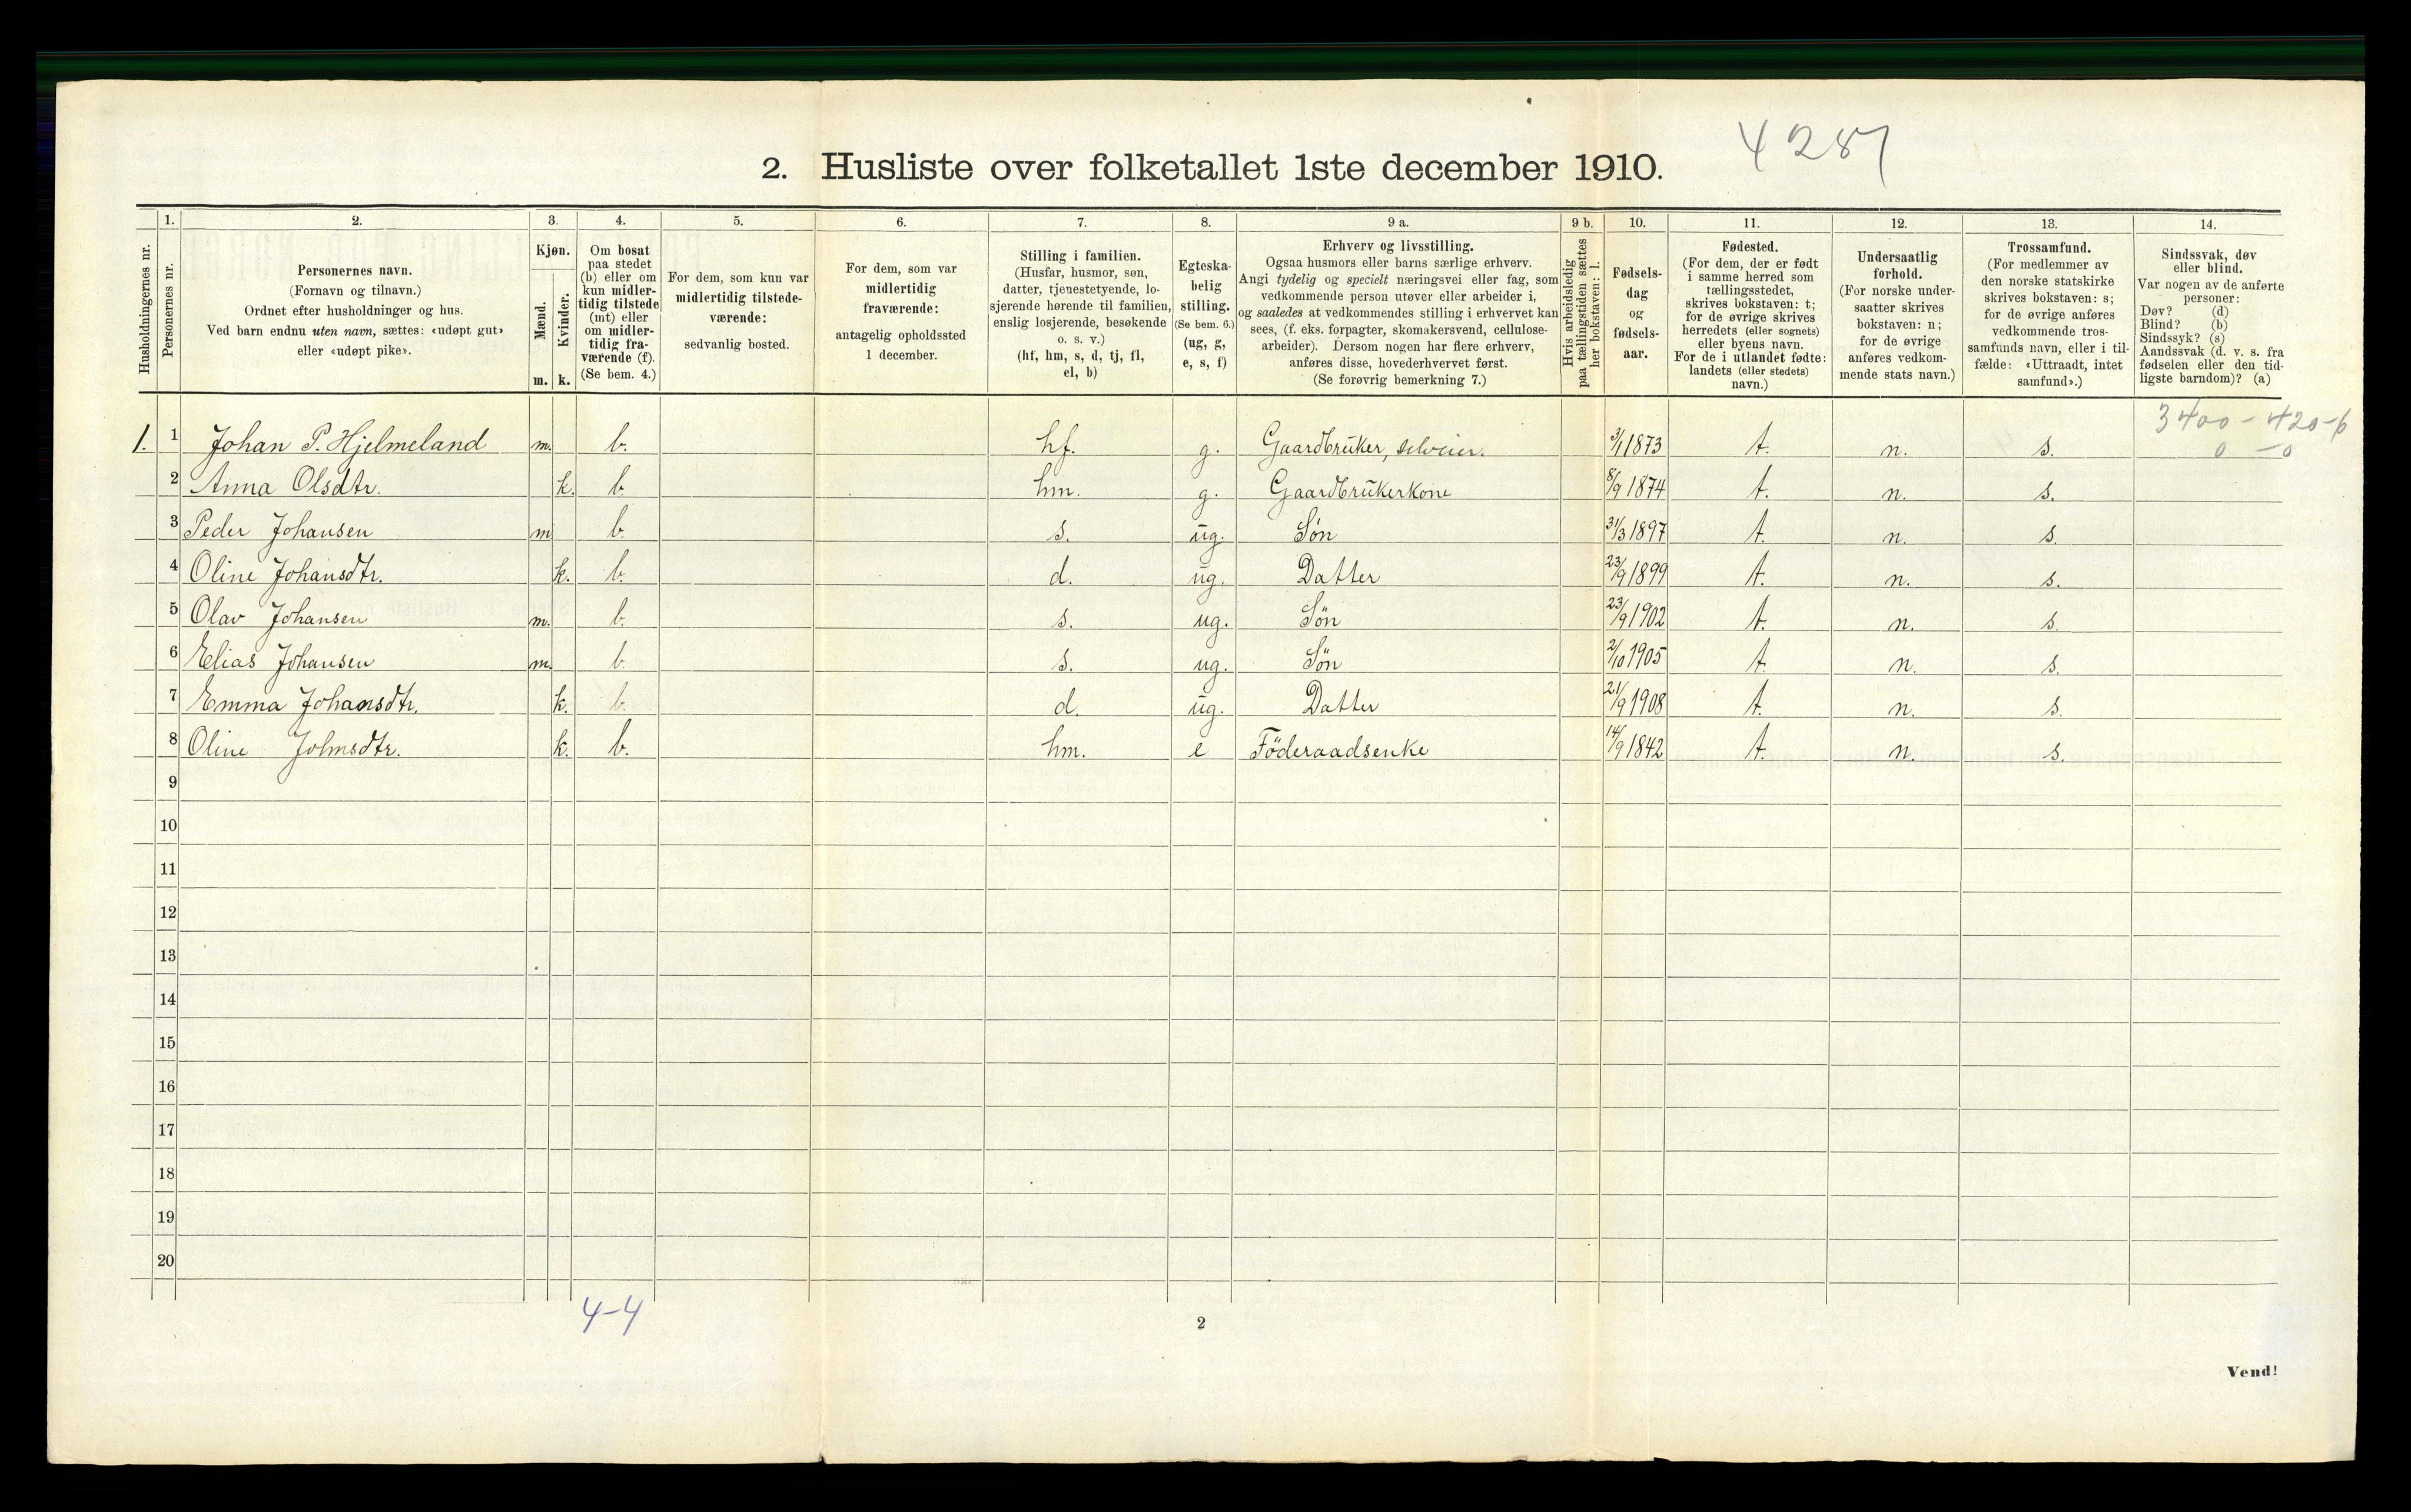 4287
2. Husliste over folketallet 1ste december 1910.
Husholdningernes nr.
1.
Personernes nr.
2.
Personernes navn.
(Fornavn og tilnavn.)
Ordnet efter husholdninger og hus.
Ved barn endnu uten navn, sættes: «udøpt gut»
eller «udøpt pike».
3.
Kjøn.
Mænd.
Kvinder.
m. k.
4.
Om bosat
paa stedet
(b) eller om
kun midler-
tidig tilstede
(mt) eller
om midler-
tidig fra-
værende (f).
(Se bem. 4.)
5.
For dem, som kun var
midlertidig tilstede-
værende:
sedvanlig bosted.
6.
For dem, som var
midlertidig
fraværende:
antagelig opholdssted
1 december.
7.
Stilling i familien.
(Husfar, husmor, søn,
datter, tjenestetyende, lo-
sjerende hørende til familien,
enslig losjerende, besøkende
o. s. v.)
(hf, hm, s, d, tj, fl,
el, b)
8.
Egteska-
belig
stilling.
(Se bem. 6.)
(ug, g,
e, s, f)
9 a.
Erhverv og livsstilling.
Ogsaa husmors eller barns særlige erhverv.
Angi tydelig og specielt næringsvei eller fag, som
vedkommende person utøver eller arbeider i,
og saaledes at vedkommendes stilling i erhvervet kan
sees, (f. eks. forpagter, skomakersvend, cellulose-
arbeider). Dersom nogen har flere erhverv,
anføres disse, hovederhvervet først.
(Se forøvrig bemerkning 7.)
9 b.
Hvis arbeidsledig
paa tællingstiden sættes
her bokstaven: l.
10.
Fødsels-
dag
og
fødsels-
aar.
11.
Fødested.
(For dem, der er født
i samme herred som
tællingsstedet,
skrives bokstaven: t;
for de øvrige skrives
herredets (eller sognets)
eller byens navn.
For de i utlandet fødte:
landets (eller stedets)
navn.)
12.
Undersaatlig
forhold.
(For norske under-
saatter skrives
bokstaven: n;
for de øvrige
anføres vedkom-
mende stats navn.)
13.
Trossamfund.
(For medlemmer av
den norske statskirke
skrives bokstaven: s;
for de øvrige anføres
vedkommende tros-
samfunds navn, eller i til-
fælde: «Uttraadt, intet
samfund».)
14.
Sindssvak, døv
eller blind.
Var nogen av de anførte
personer:
Døv? (d)
Blind? (b)
Sindssyk? (s)
Aandssvak (d. v. s. fra
fødselen eller den tid-
ligste barndom)? (a)
3400 - 420-6
0 - 0
1. 1 Johan P. Hjelmeland m. b. hf. g. Gaardbruker, selveier. 3/1 1873 t. n. s.
2 Anna Olsdtr. k. b. hm. g. Gaardbrukerkone 8/9 1874 t. n. s.
3 Peder Johansen m b. s. ug. Søn 31/3 1897 t. n. s.
4 Oline Johansdtr. k. b. d. ug. Datter 23/9 1899 t. n. s.
5 Olav Johansen m. b. s. ug. Sön 23/9 1902 t. n. s.
6 Elias Johansen m. b. s. ug. Sön 2/10 1905 t. n. s.
7 Emma Johansdtr. k. b. d. ug. Datter 21/9 1908 t. n. s.
8 Oline Johnsdtr. k. b. hm. e Föderaadsenke 14/9 1842 t. n. s.
9
10
11
12
13
14
15
16
17
18
19
20
4-4
2
Vend!